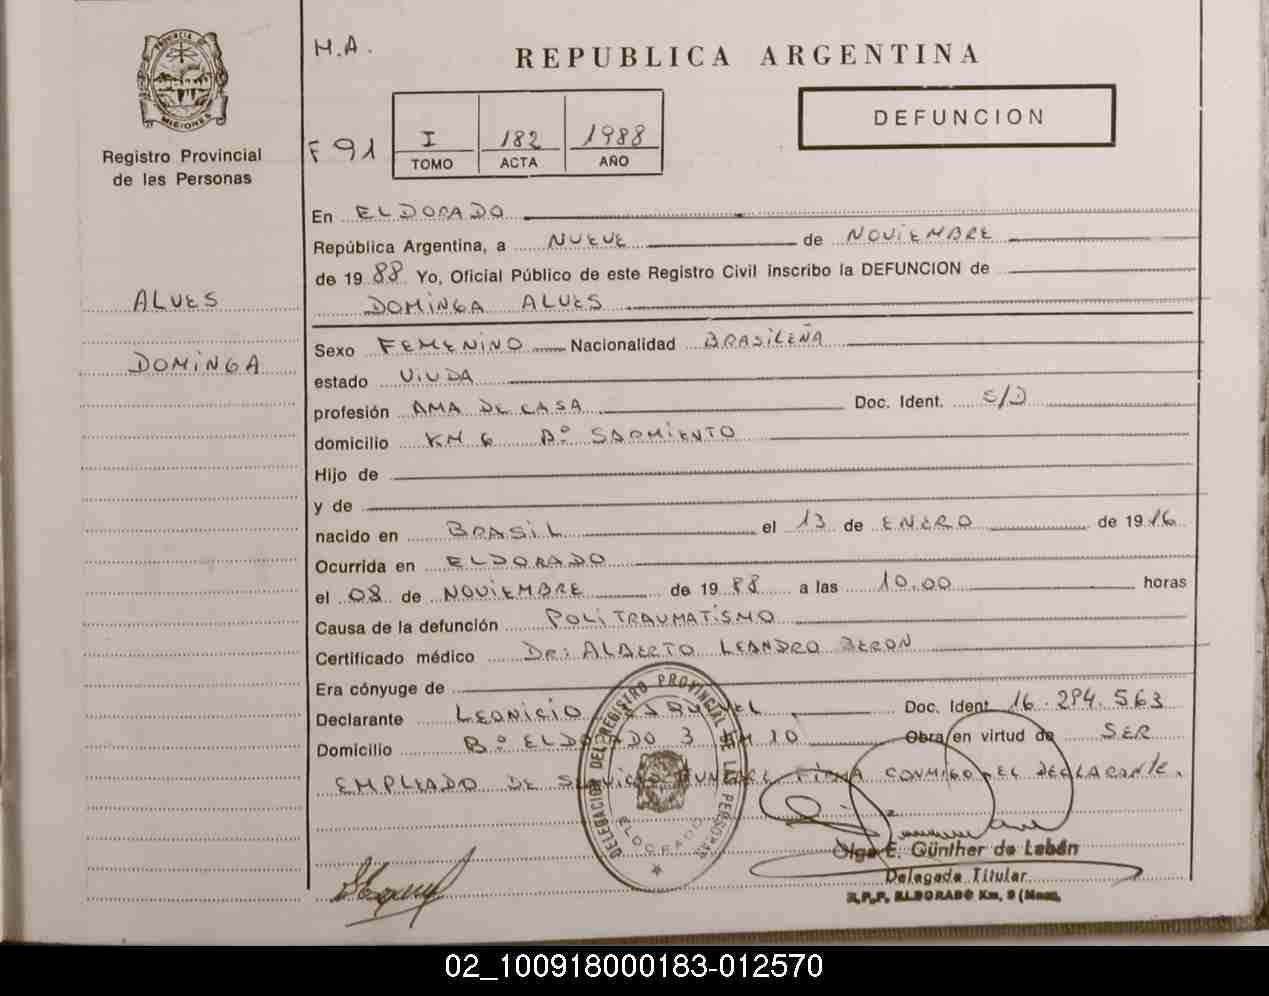 PROVINCIA DE
MISIONES
Registro Provincial
de las Personas
ALVES
DOMINGA
M.A.
REPUBLICA ARGENTINA
DEFUNCION
F 91
I 182 1988
TOMO ACTA AÑO
En ELDORADO
República Argentina, a NUEVE de NOVIEMBRE
de 1988 Yo, Oficial Público de este Registro Civil inscribo la DEFUNCION de
DOMINGA ALVES
Sexo FEMENINO Nacionalidad BRASILEÑA
estado VIUDA
profesión AMA DE CASA Doc. Ident. S/D
domicilio KM 6 Bº SARMIENTO
Hijo de
y de
nacido en BRASIL el 13 de ENERO de 1916
Ocurrida en ELDORADO
el 08 de NOVIEMBRE de 1988 a las 10.00 horas
Causa de la defunción POLITRAUMATISMO
Certificado médico DR: ALBERTO LEANDRO BERON
Era cónyuge de
Declarante LEONICIO Doc. Ident. 16.294.563
Domicilio Bº ELDORADO 3 KM 10 Obra en virtud de SER
EMPLEADO DE SERVICIO FUNEBRE FIRMA CONMIGO EL DECLARANTE.
DELEGACION DEL REGISTRO PROVINCIAL DE LAS PERSONAS
ELDORADO
Olga E. Günther de Labán
Delegada Titular
R.P.P. ELDORADO Km. 9 (Mnes.)
02_100918000183-012570